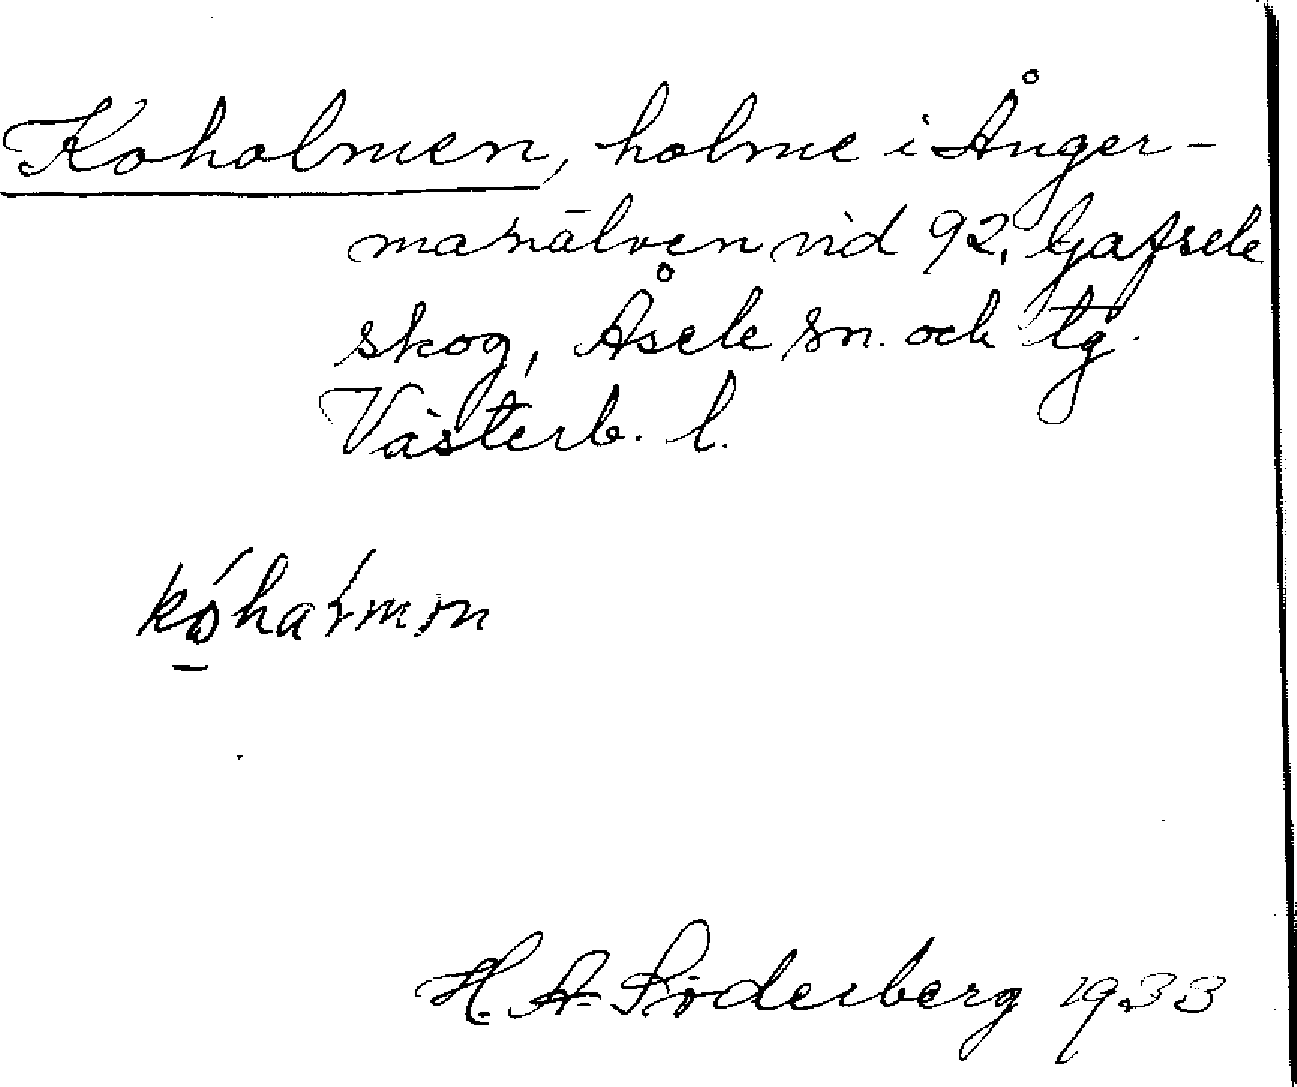 Koholmen, holme i Ånger-
manälven vid 92, Gafsele
skog, Åsele sn. och tg.
Västerb. l.
H. A. Söderberg 1933